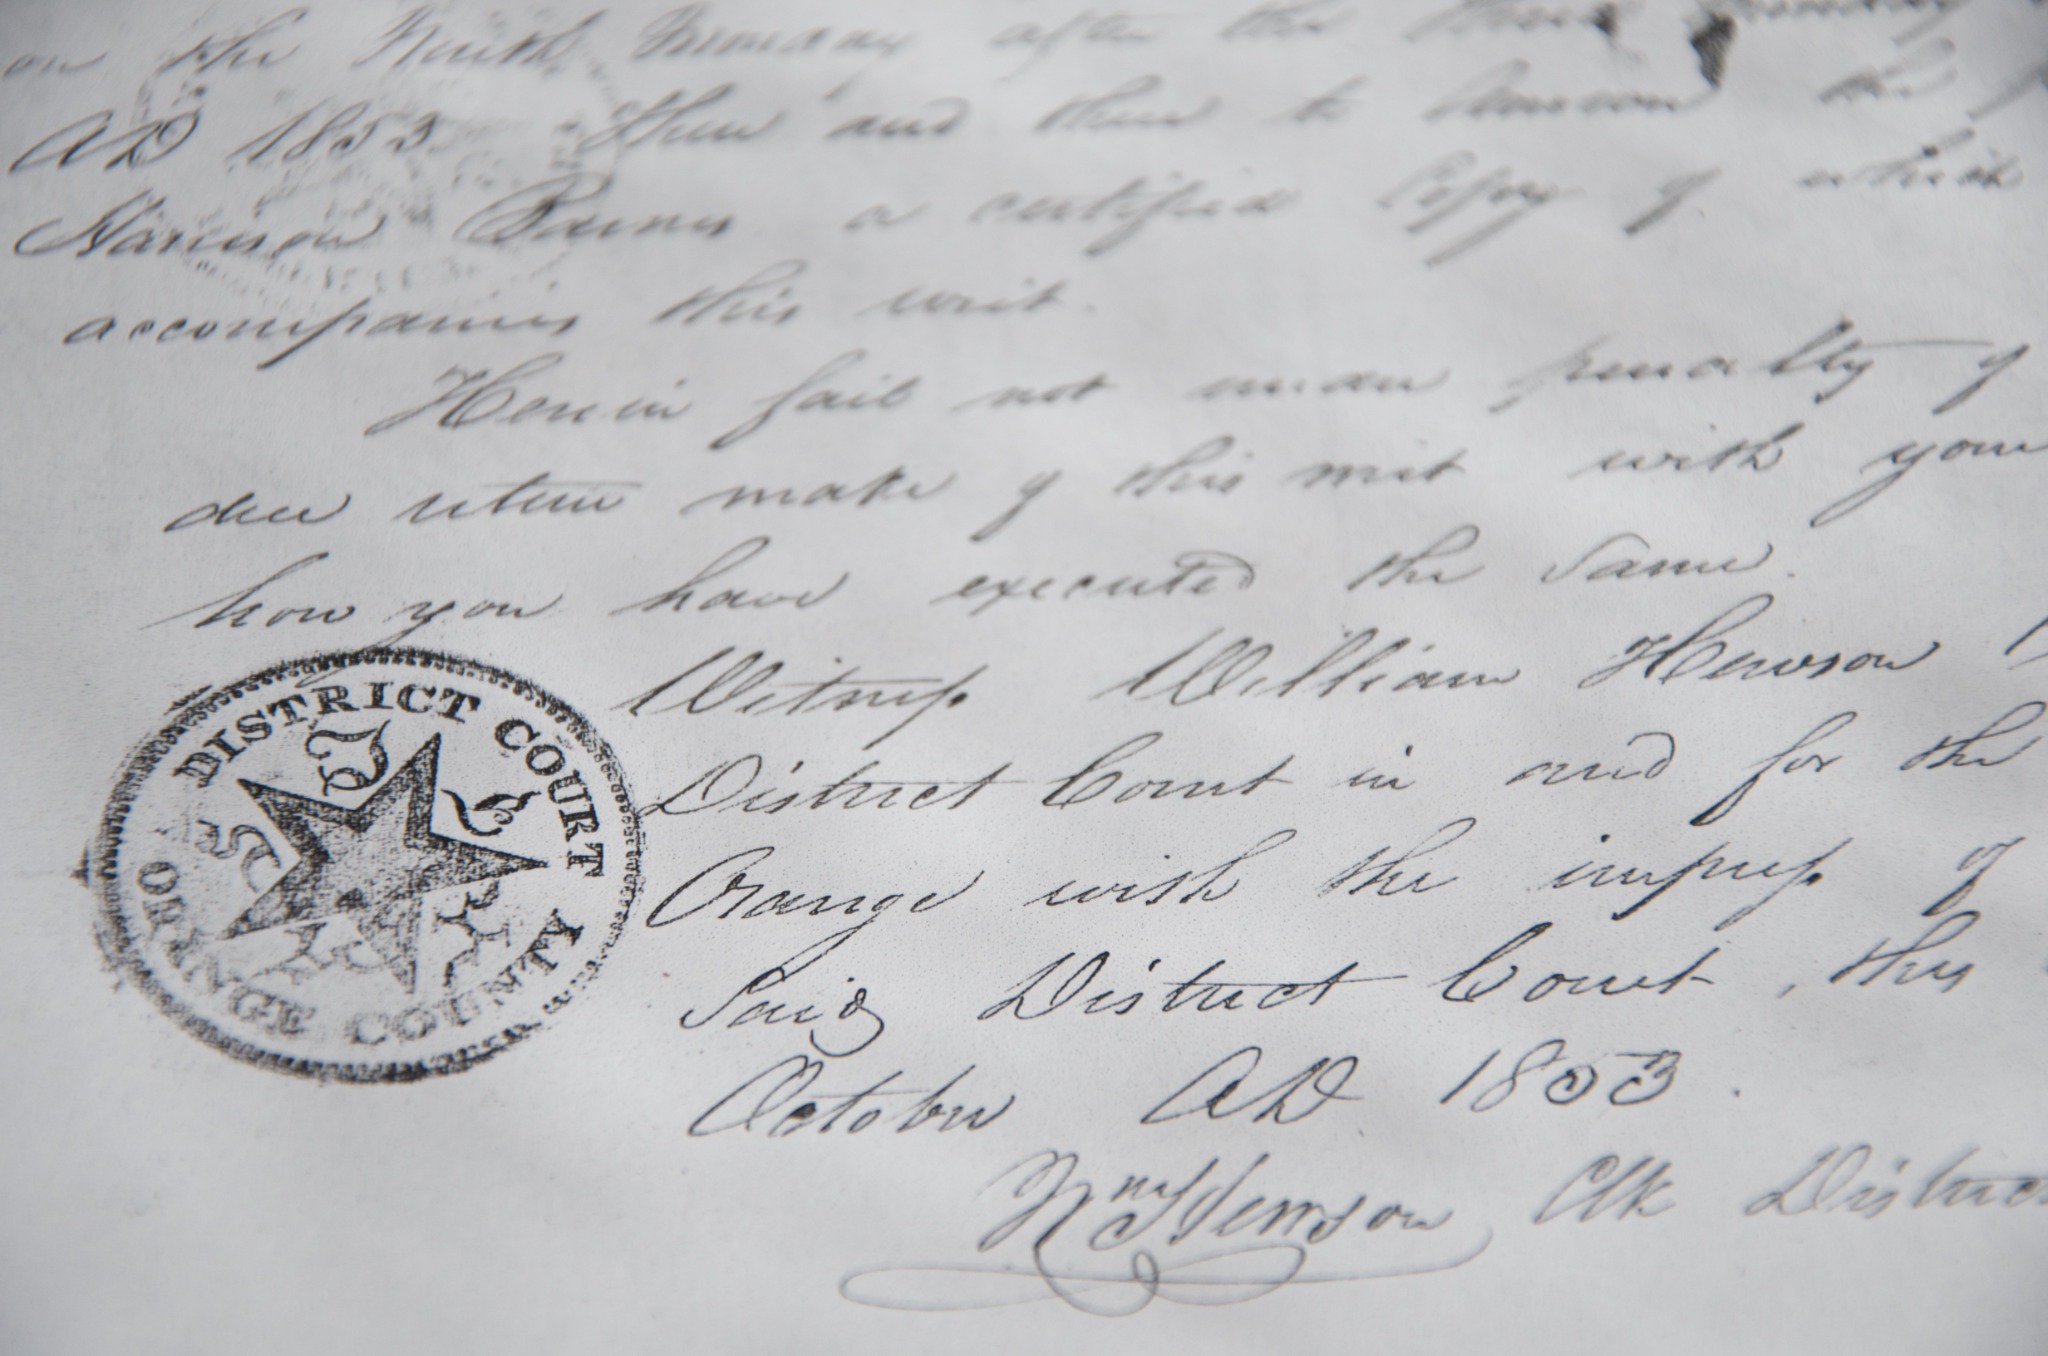 on the Ninth Monday after the
AD 1853 Then and there to
Harrison a certified Copy of which
accompanies this writ.
Herein fail not under penalty of
due return make of this writ with your
how you have executed the same.
Witness William Hewson
District Court in and for the
Orange with the impress of
Said District Court, this
October AD 1853.
Wm Hewson Clk District
DISTRICT COURT
TEXAS
ORANGE COUNTY